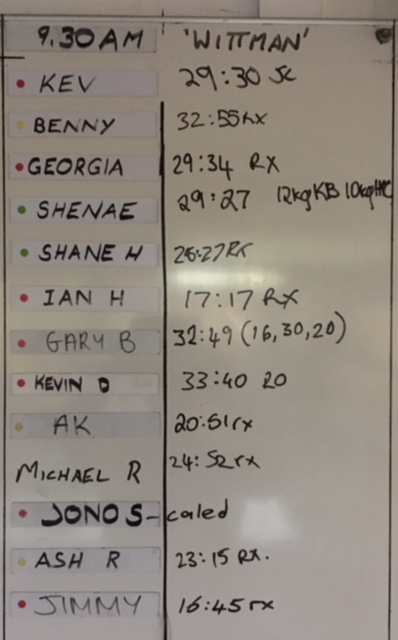 9.30AM 'WITTMAN'
KEV 29:30 SC
BENNY 32:55 Rx
GEORGIA 29:34 RX
SHENAE 29:27 12kg KB 10kg
SHANE H 26:27 RX
IAN H 17:17 RX
GARY B 32:49 (16,30,20)
KEVIN D 33:40 20
AK 20:51 rx
MICHAEL R 24:52 rx
JONO S-caled
ASH R 23:15 RX.
JIMMY 16:45 rx